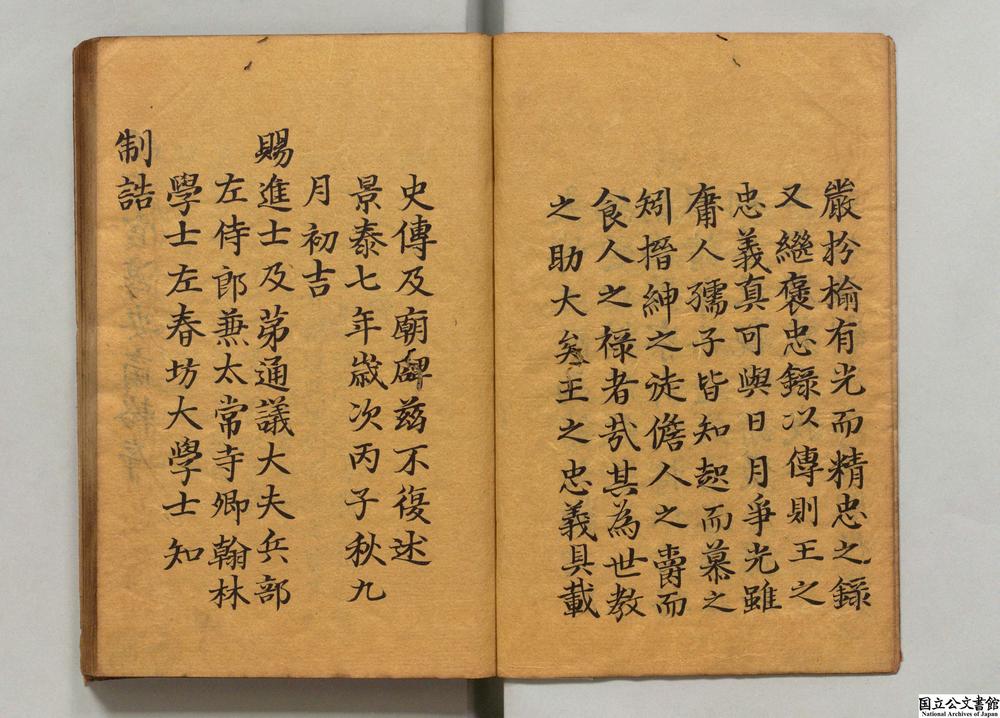 嚴於榆有光而精忠之錄
又繼褒忠錄以傳則王之
忠義真可與日月爭光雖
庸人孺子皆知起而慕之
矧搢紳之徒儋人之爵而
食人之祿者哉其為世教
之助大矣王之忠義具載
史傳及廟碑茲不復述
景泰七年歲次丙子秋九
月初吉
賜進士及苐通議大夫兵部
左侍郎兼太常寺卿翰林
學士左春坊大學士知
制誥
国立公文書館
National Archives of Japan